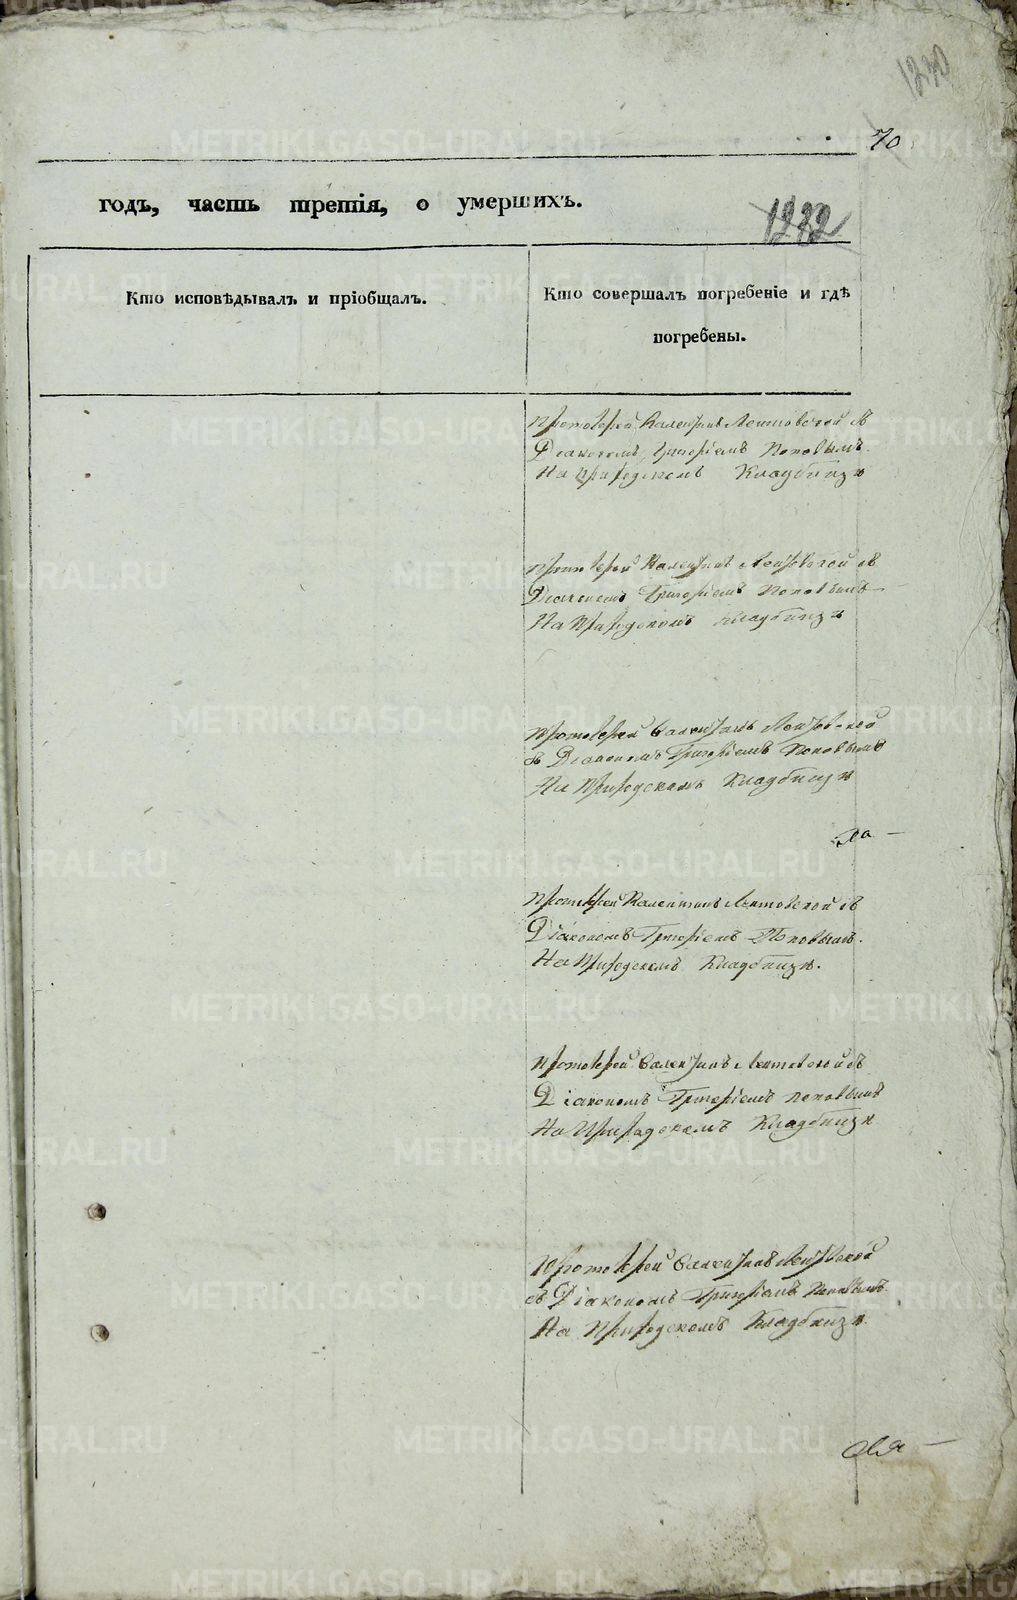 1240
70
годъ, часть третія, о умершихъ.
1282
Кто исповѣдывалъ и пріобщалъ.
Кто совершалъ погребеніе и гдѣ
погребены.
Протоіерей Валентинъ Лентовской съ
Діакономъ Григоріемъ Поповымъ
На Природскомъ Кладбищѣ
Протоіерей Валентинъ Лентовской съ
Діакономъ Григоріемъ Поповымъ
На Природскомъ Кладбищѣ
Протоіерей Валентинъ Лентовской
съ Діакономъ Григоріемъ Поповымъ
На Природскомъ Кладбищѣ
Протоіерей Валентинъ Лентовской съ
Діакономъ Григоріемъ Поповымъ.
На Природскомъ Кладбищѣ.
Протоіерей Валентинъ Лентовской съ
Діакономъ Григоріемъ Поповымъ
На Природскомъ Кладбищѣ
Протоіерей Валентинъ Лентовской
съ Діакономъ Григоріемъ Поповымъ
На Природскомъ Кладбищѣ
METRIKI.GASO-URAL.RU